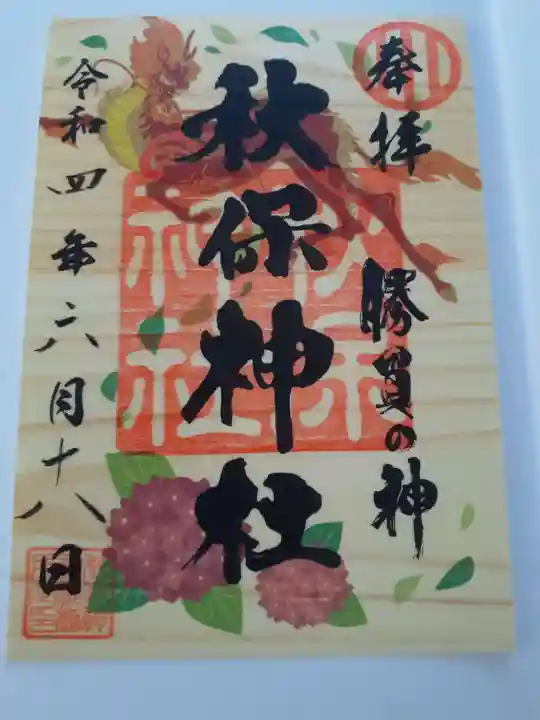 奉拝 勝負の神
秋保神社
令和四年六月十八日